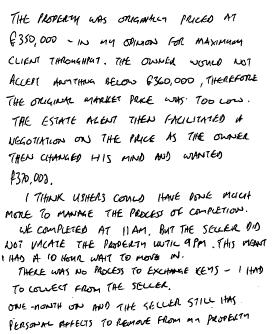 THE PROPERTY WAS ORIGINALLY PRICED AT
£350,000 - IN MY OPINION FOR MAXIMUM
CLIENT THROUGHPUT. THE OWNER WOULD NOT
ACCEPT ANYTHING BELOW £360,000, THEREFORE
THE ORIGINAL MARKET PRICE WAS TOO LOW.
THE ESTATE AGENT THEN FACILITATED A
NEGOTIATION ON THE PRICE AS THE OWNER
THEN CHANGED HIS MIND AND WANTED
£370,000.
I THINK USHERS COULD HAVE DONE MUCH
MORE TO MANAGE THE PROCESS OF COMPLETION.
WE COMPLETED AT 11AM, BUT THE SELLER DID
NOT VACATE THE PROPERTY UNTIL 9PM. THIS MEANT
I HAD A 10 HOUR WAIT TO MOVE IN.
THERE WAS NO PROCESS TO EXCHANGE KEYS - I HAD
TO COLLECT FROM THE SELLER.
ONE-MONTH ON AND THE SELLER STILL HAS
PERSONAL AFFECTS TO REMOVE FROM MY PROPERTY